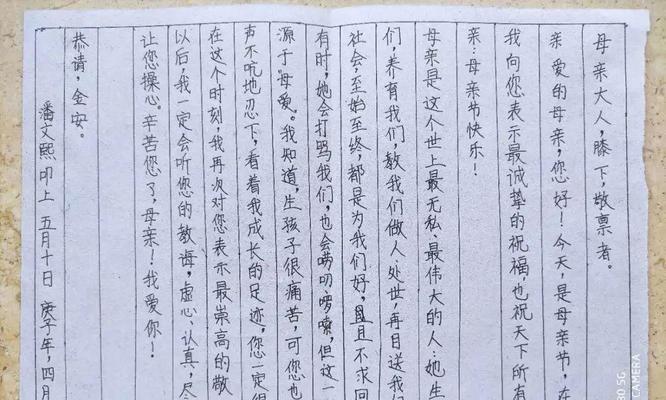 母亲大人，膝下，敬禀者。
亲爱的母亲，您好！今天，是母亲节，在
我向您表示最诚挚的祝福也祝天下所有
亲：母亲节快乐！
母亲是这个世上最无私、最伟大的人：她生
们，养育我们，教我们做人处世，再目送我们
社会；至始至终，都是为我们好，且且不求回
有时，她会打骂我们，也会唠叨、啰嗦，但这一
源于母爱。我知道，生孩子很痛苦，可您也
声不吭地忍下，看着我成长的足迹，您一定很
在这个时刻，我再次对您表示最崇高的敬
以后，我一定会听您的教诲，虚心、认真，尽
让您操心。辛苦您了，母亲！我爱你！
恭请，金安。
潘文熙叩上 五月十日 庚子年，四月
5G
CAMERA